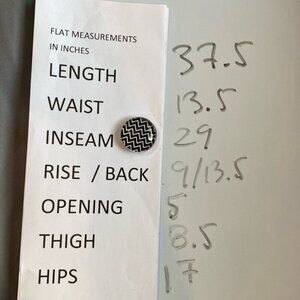 FLAT MEASUREMENTS
IN INCHES
LENGTH 37.5
WAIST 13.5
INSEAM 29
RISE / BACK 9/13.5
OPENING 5
THIGH 8.5
HIPS 17